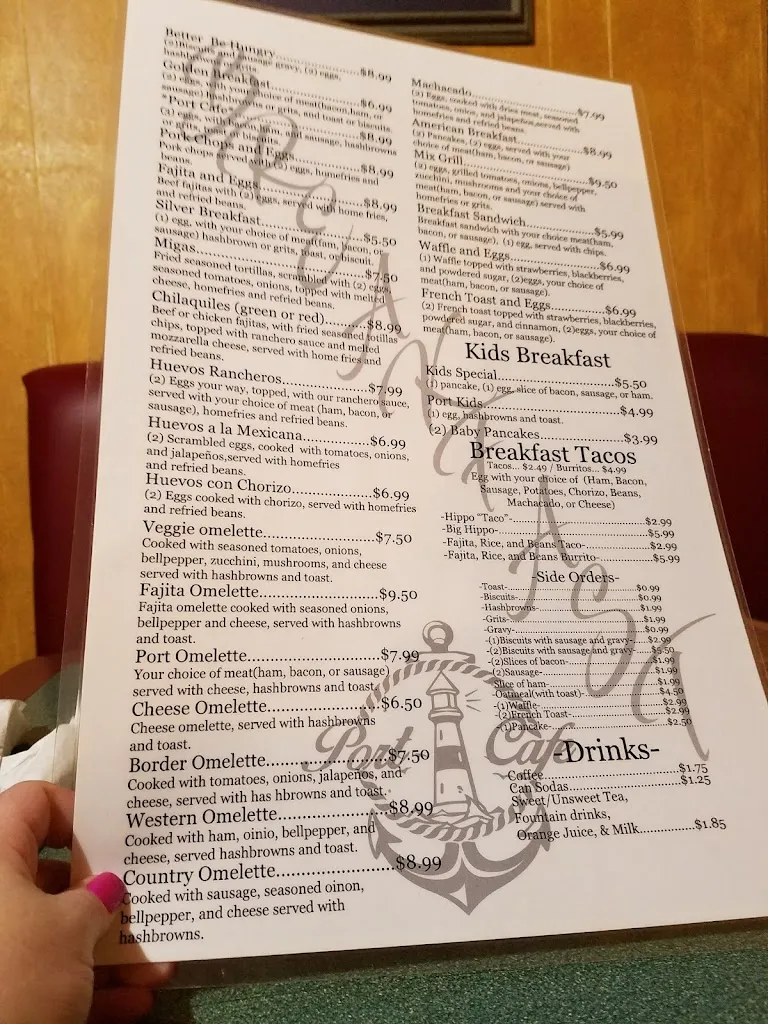 Better Be Hungry.........$8.99
(2)Biscuits and sausage gravy, (2) eggs,
hashbrowns or grits.
Golden Breakfast.........$6.99
(2) eggs, with your choice of meat(bacon,ham, or
sausage) hashbrowns or grits, and toast or biscuits.
*Port Cafe*.........$8.99
(3) eggs, with bacon, ham, and sausage, hashbrowns
or grits, toast or biscuits.
Pork Chops and Eggs.........$8.99
Pork chops served with (2) eggs, homefries and
beans.
Fajita and Eggs.........$8.99
Beef fajitas with (2) eggs, served with home fries,
and refried beans.
Silver Breakfast.........$5.50
(1) egg, with your choice of meat(ham, bacon, or
sausage) hashbrown or grits, toast, or biscuit.
Migas.........$7.50
Fried seasoned tortillas, scrambled with (2) eggs,
seasoned tomatoes, onions, topped with melted
cheese, homefries and refried beans.
Chilaquiles (green or red).........$8.99
Beef or chicken fajitas, with fried seasoned totillas
chips, topped with ranchero sauce and melted
mozzarella cheese, served with home fries and
refried beans.
Huevos Rancheros.........$7.99
(2) Eggs your way, topped, with our ranchero sauce,
served with your choice of meat (ham, bacon, or
sausage), homefries and refried beans.
Huevos a la Mexicana.........$6.99
(2) Scrambled eggs, cooked with tomatoes, onions,
and jalapeños,served with homefries
and refried beans.
Huevos con Chorizo.........$6.99
(2) Eggs cooked with chorizo, served with homefries
and refried beans.
Veggie omelette.........$7.50
Cooked with seasoned tomatoes, onions,
bellpepper, zucchini, mushrooms, and cheese
served with hashbrowns and toast.
Fajita Omelette.........$9.50
Fajita omelette cooked with seasoned onions,
bellpepper and cheese, served with hashbrowns
and toast.
Port Omelette.........$7.99
Your choice of meat(ham, bacon, or sausage)
served with cheese, hashbrowns and toast.
Cheese Omelette.........$6.50
Cheese omelette, served with hashbrowns
and toast.
Border Omelette.........$7.50
Cooked with tomatoes, onions, jalapeños, and
cheese, served with has hbrowns and toast.
Western Omelette.........$8.99
Cooked with ham, oinio, bellpepper, and
cheese, served hashbrowns and toast.
Country Omelette.........$8.99
Cooked with sausage, seasoned oinon,
bellpepper, and cheese served with
hashbrowns.
Machacado.........$7.99
(2) Eggs, cooked with dried meat, seasoned
tomatoes, onios, and jalapeños,served with
homefries and refried beans.
American Breakfast.........$8.99
(2) Pancakes, (2) eggs, served with your
choice of meat(ham, bacon, or sausage)
Mix Grill.........$9.50
(2) eggs, grilled tomatoes, onions, bellpepper,
zucchini, mushrooms and your choice of
meat(ham, bacon, or sausage) served with
homefries or grits.
Breakfast Sandwich.........$5.99
Breakfast sandwich with your choice meat(ham,
bacon, or sausage), (1) egg, served with chips.
Waffle and Eggs.........$6.99
(1) Waffle topped with strawberries, blackberries,
and powdered sugar, (2)eggs, your choice of
meat(ham, bacon, or sausage).
French Toast and Eggs.........$6.99
(2) French toast topped with strawberries, blackberries,
powdered sugar, and cinnamon, (2)eggs, your choice of
meat(ham, bacon, or sausage).
Kids Breakfast
Kids Special.........$5.50
(1) pancake, (1) egg, slice of bacon, sausage, or ham.
Port Kids.........$4.99
(1) egg, hashbrowns and toast.
(2) Baby Pancakes.........$3.99
Breakfast Tacos
Tacos... $2.49 / Burritos... $4.99
Egg with your choice of (Ham, Bacon,
Sausage, Potatoes, Chorizo, Beans,
Machacado, or Cheese)
-Hippo "Taco"-.........$2.99
-Big Hippo-.........$5.99
-Fajita, Rice, and Beans Taco-.........$2.99
-Fajita, Rice, and Beans Burrito-.........$5.99
-Side Orders-
-Toast-.........$0.99
-Biscuits-.........$0.99
-Hashbrowns-.........$1.99
-Grits-.........$1.99
-Gravy-.........$0.99
-(1)Biscuits with sausage and gravy-.........$2.99
-(2)Biscuits with sausage and gravy-.........$5.50
-(2)Slices of bacon-.........$1.99
-(2)Sausage-.........$1.99
-Slice of ham-.........$1.99
-Oatmeal(with toast)-.........$4.50
-(1)Waffle-.........$2.99
-(2)French Toast-.........$2.99
-(1)Pancake-.........$2.50
-Drinks-
Coffee.........$1.75
Can Sodas.........$1.25
Sweet/Unsweet Tea,
Fountain drinks,
Orange Juice, & Milk.........$1.85
BREAKFAST
Port Cafe